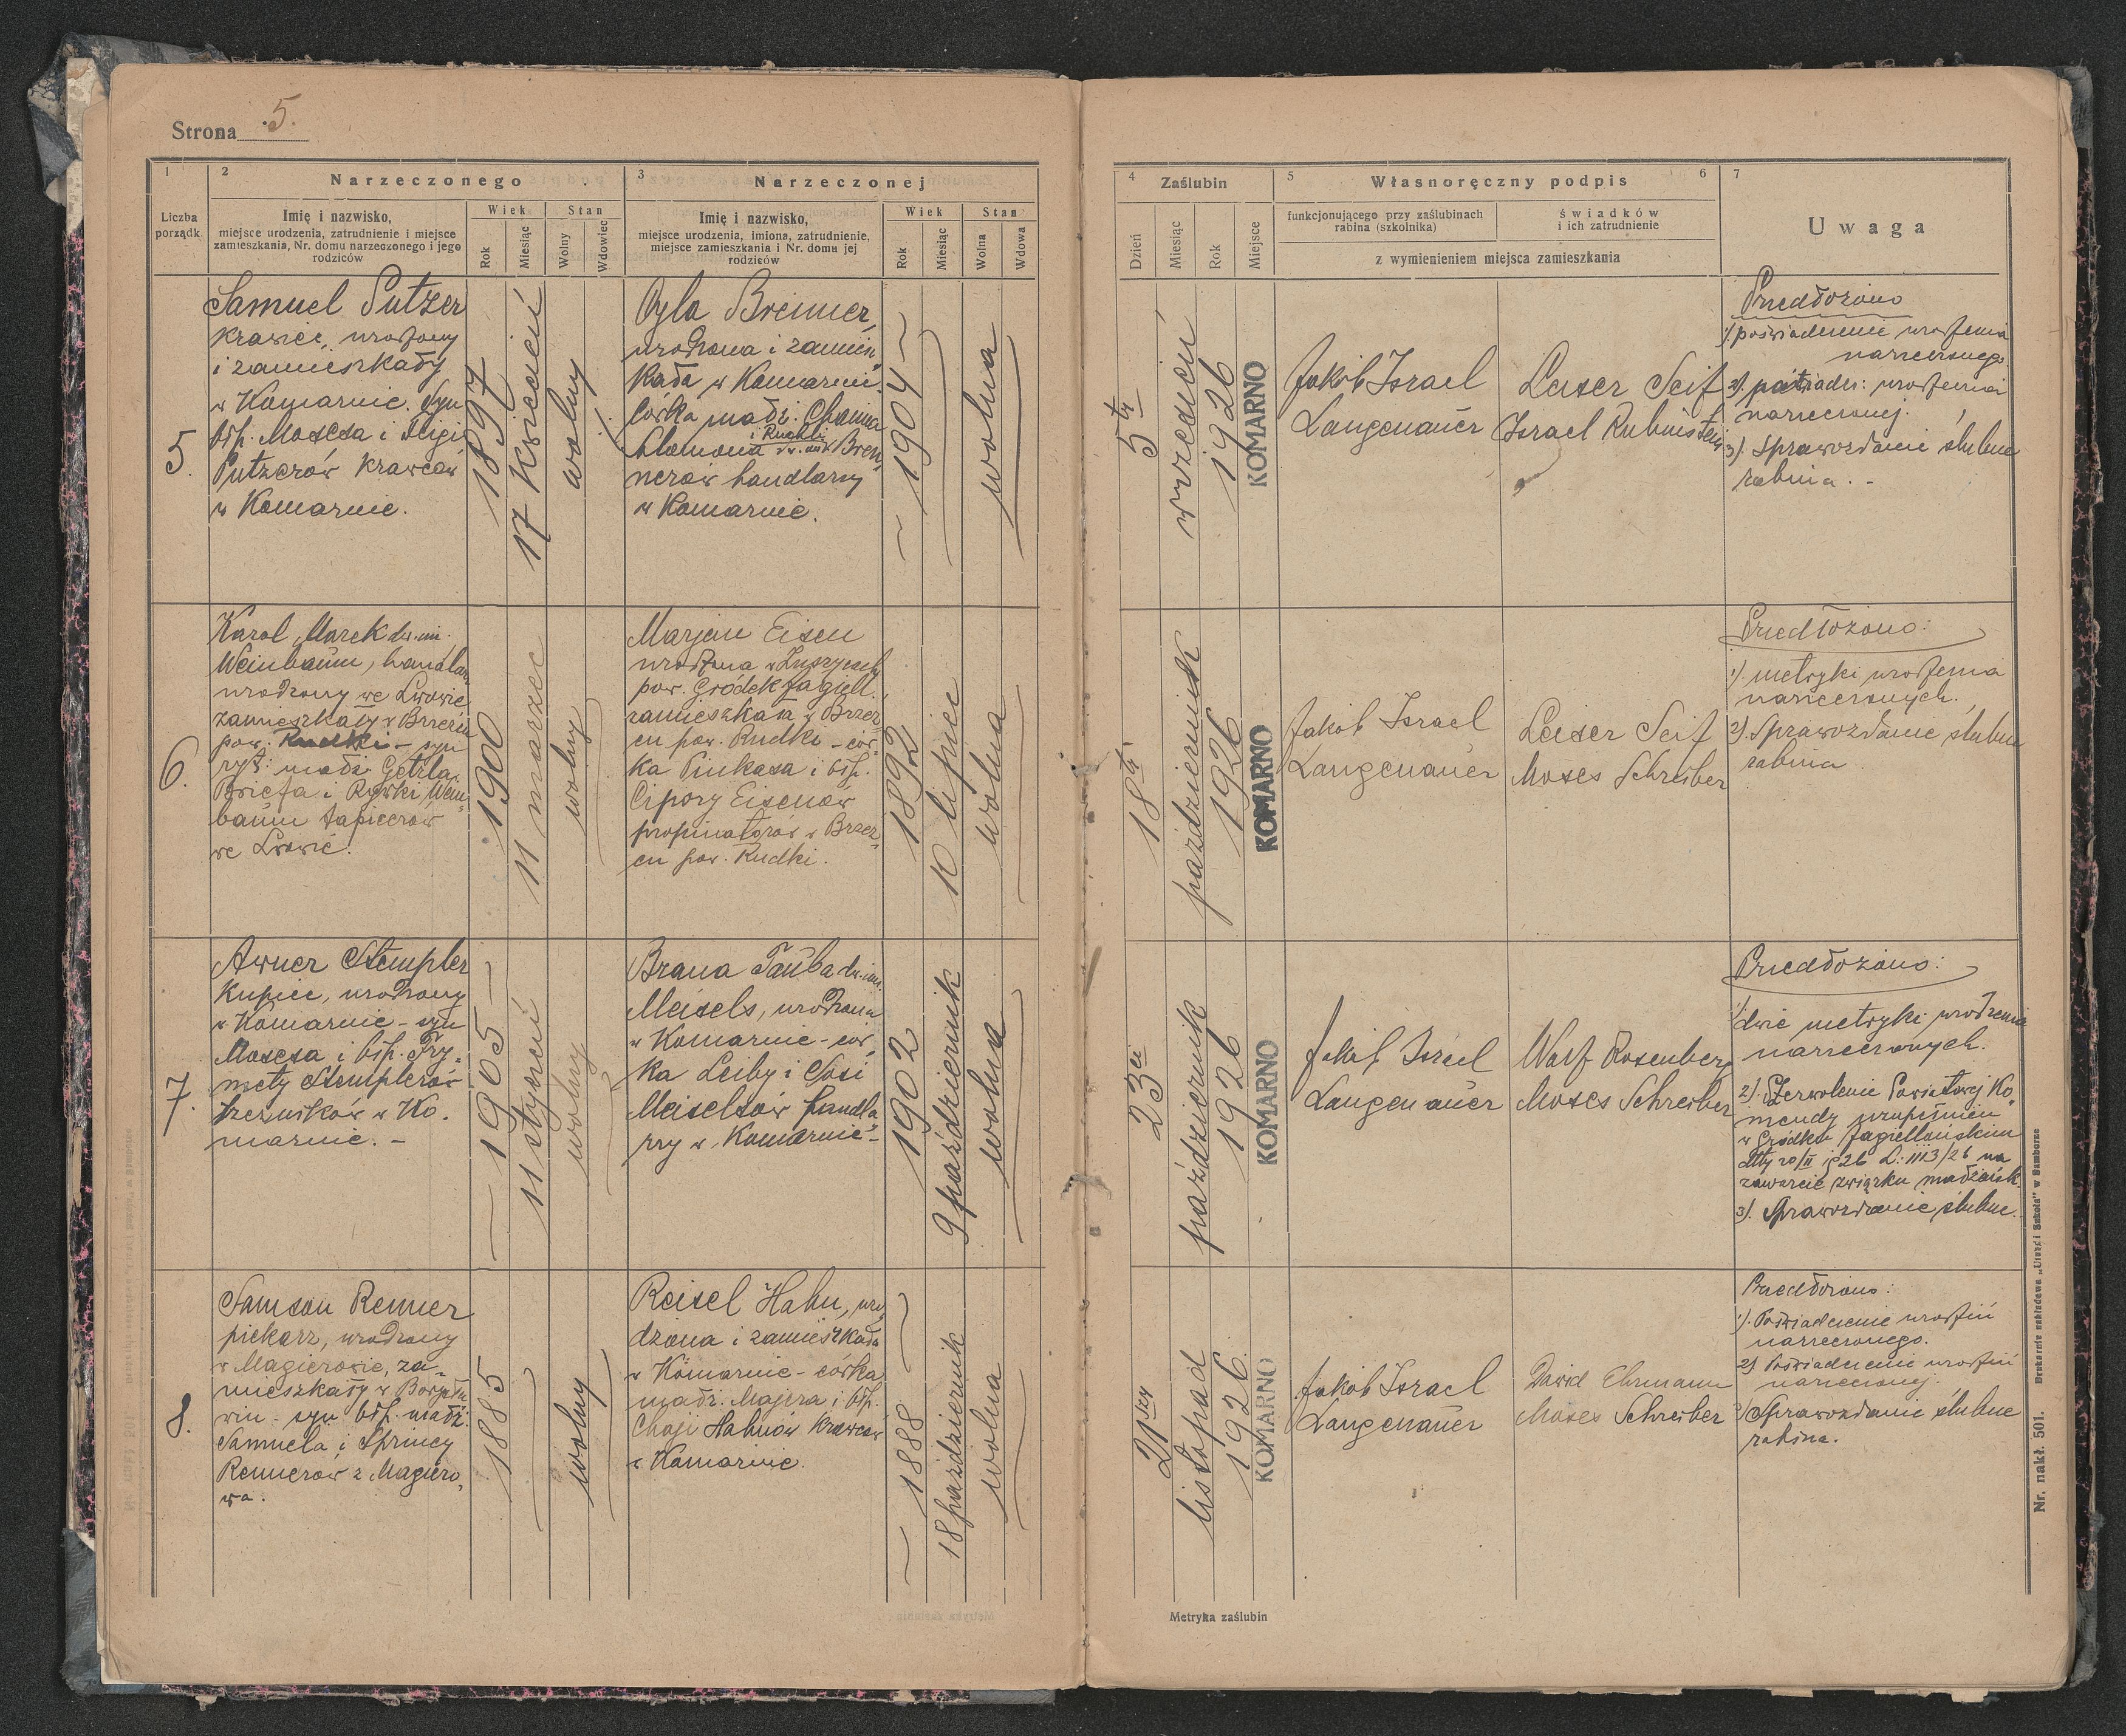 Strona 5.
1
Liczba
porządk.
2
Narzeczonego
Imię i nazwisko,
miejsce urodzenia, zatrudnienie i miejsce
zamieszkania, Nr. domu narzeczonego i jego
rodziców
Wiek
Rok
Miesiąc
Stan
Wolny
Wdowiec
3
Narzeczonej
Imię i nazwisko,
miejsce urodzenia, imiona, zatrudnienie,
miejsce zamieszkania i Nr. domu jej
rodziców
Wiek
Rok
Miesiąc
Stan
Wolna
Wdowa
4
Zaślubin
Dzień
Miesiąc
Rok
Miejsce
5
Własnoręczny podpis
6
funkcjonującego przy zaślubinach
rabina (szkolnika)
świadków
i ich zatrudnienie
z wymienieniem miejsca zamieszkania
7
Uwaga
5.
Samuel Putzer
krawiec, urodzony
i zamieszkały
w Komarnie. Syn
Mosesa i
Putzerów krawców
w Komarnie.
1897
17 kwiecień
wolny
Cyla Brenner,
urodzona i zamiesz
kała w Komarnie.
córka małż. Chaima
Salomona i Ruchli dw. im. Bren
nerów handlarzy
w Komarnie.
1904
wolna
5ty
wrzesień
1926
KOMARNO
Jakób Israel
Langenauer
Leiser Seif
Israel Rubinstein
Przedłożono
1) poświadczenie urodzenia
narzeczonego
2). poświadcz: urodzenia
narzeczonej.
3). Sprawozdanie ślubne
rabina. -
6.
Karol Marek dw. im.
Weinbaum, handlarz
urodzony we Lwowie
zamieszkały w Brzeźcu
pow. Rudki - syn
ryt. małż. Getzla
i Rywki Wein
baum tapicerów
we Lwowie.
1900
11 marzec
wolny
Marjem Eisen
urodzona w
pow. Gródek Jagiell.,
zamieszkała w Brzez
cu pow. Rudki - cór
ka Pinkasa i
Cipory Eisenów
propinatorów w Brzez
cu pow. Rudki.
1892
10 lipiec
wolna
18ty
październik
1926
KOMARNO
Jakób Israel
Langenauer
Leiser Seif
Moses Schreiber
Przedłożono:
1). metryki urodzenia
narzeczonych.
2). Sprawozdanie ślubne
rabina
7.
Awner Stempler
kupiec, urodzony
w Komarnie - syn
Mosesa i Fry
mety Stemplerów
rzeźników w Ko.
marnie. -
1905
11 styczeń
wolny
Brana Tauba dw. im.
Meisels, urodzona
w Komarnie - cór
ka Leiby i Sosi
Meiselsów handla
rzy w Komarnie -
1902
9 październik
wolna
23ci
październik
1926
KOMARNO
Jakób Israel
Langenauer
Wolf Rosenberg
Moses Schreiber
Przedłożono:
1) dwie metryki urodzenia
narzeczonych.
2). Zezwolenie Powiatowej Ko
mendy uzupełnień
w Gródku Jagiellońskim
dtty 20/II 1926 L: 1113/26 na
zawarcie związku małżeńsk.
3). Sprawozdanie ślubne.
8.
Samson Renner
piekarz, urodzony
w Magierowie, za-
mieszkały w
- syn małż.
Samuela i Sprincy
Rennerów z Magiero
wa.
1885
wolny
Reisel Hahn, uro
dzona i zamieszkała
w Komarnie - córka
małż. Majera i
Chaji Hahnów krawców
w Komarnie.
1888
18 październik
wolna
21szy
listopad
1926
KOMARNO
Jakób Israel
Langenauer
Dawid Ehrmann
Moses Schreiber
Przedłożono:
1). Poświadczenie urodzin
narzeczonego.
2) Poświadczenie urodzin
narzeczonej.
Sprawozdanie ślubne
rabina.
Metryka zaślubin
Nr. nakł. 501. Drukarnia nakładowa „Urząd i Szkoła” w Samborze